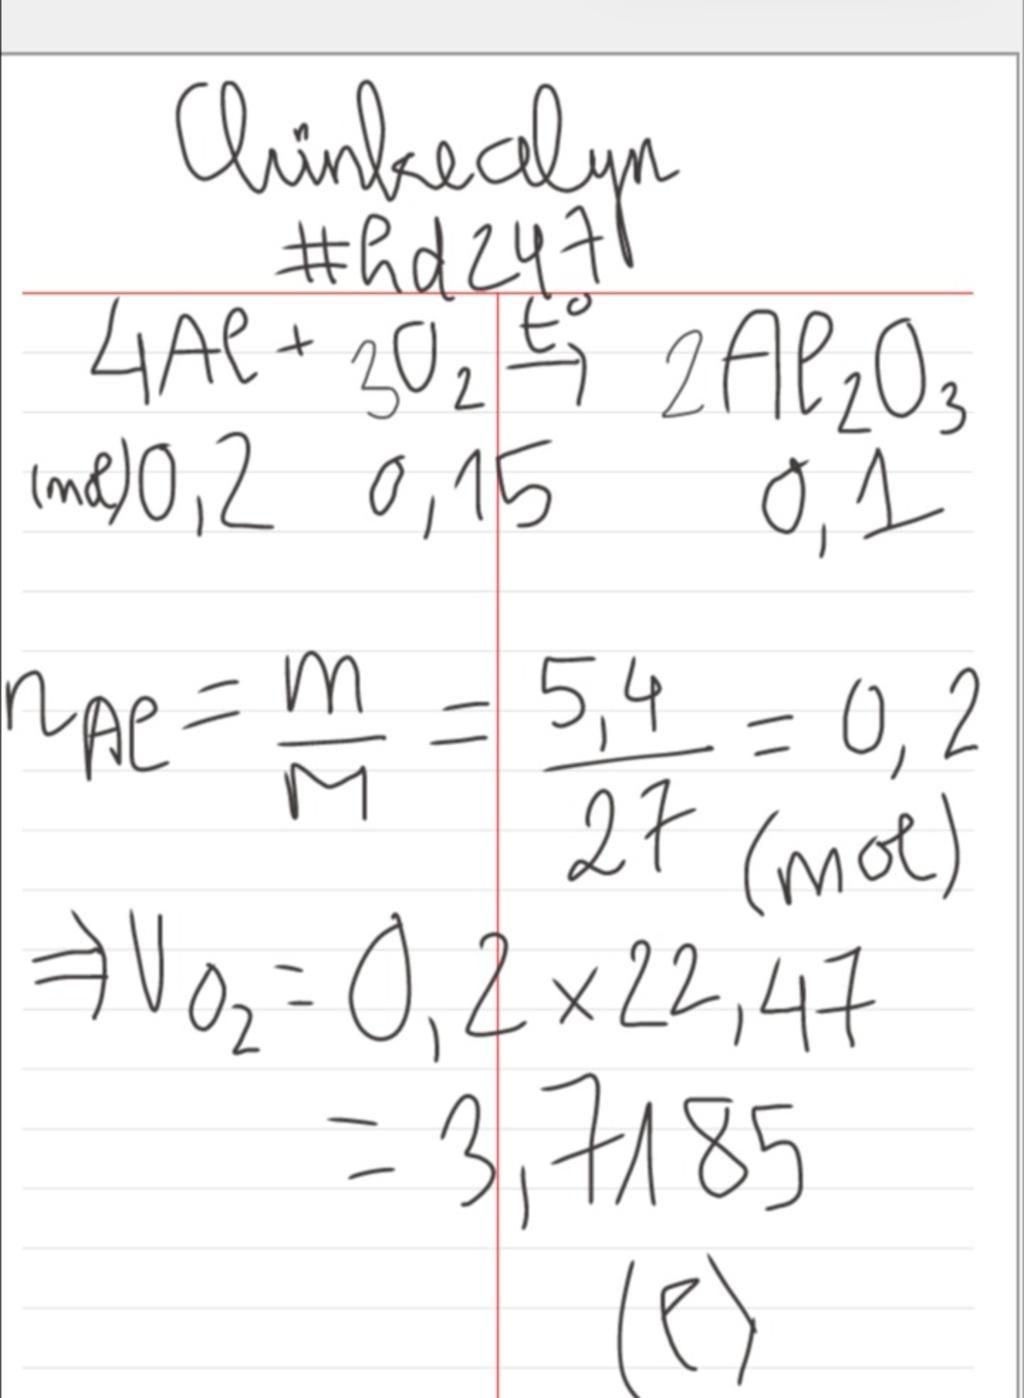 #hd247
4Al + 3O₂ →(t°) 2Al₂O₃
(mol) 0,2 0,15 0,1
nAl = m/M = 5,4/27 = 0,2
(mol)
⇒ VO₂ = 0,2 × 22,47
= 3,7185
(l)